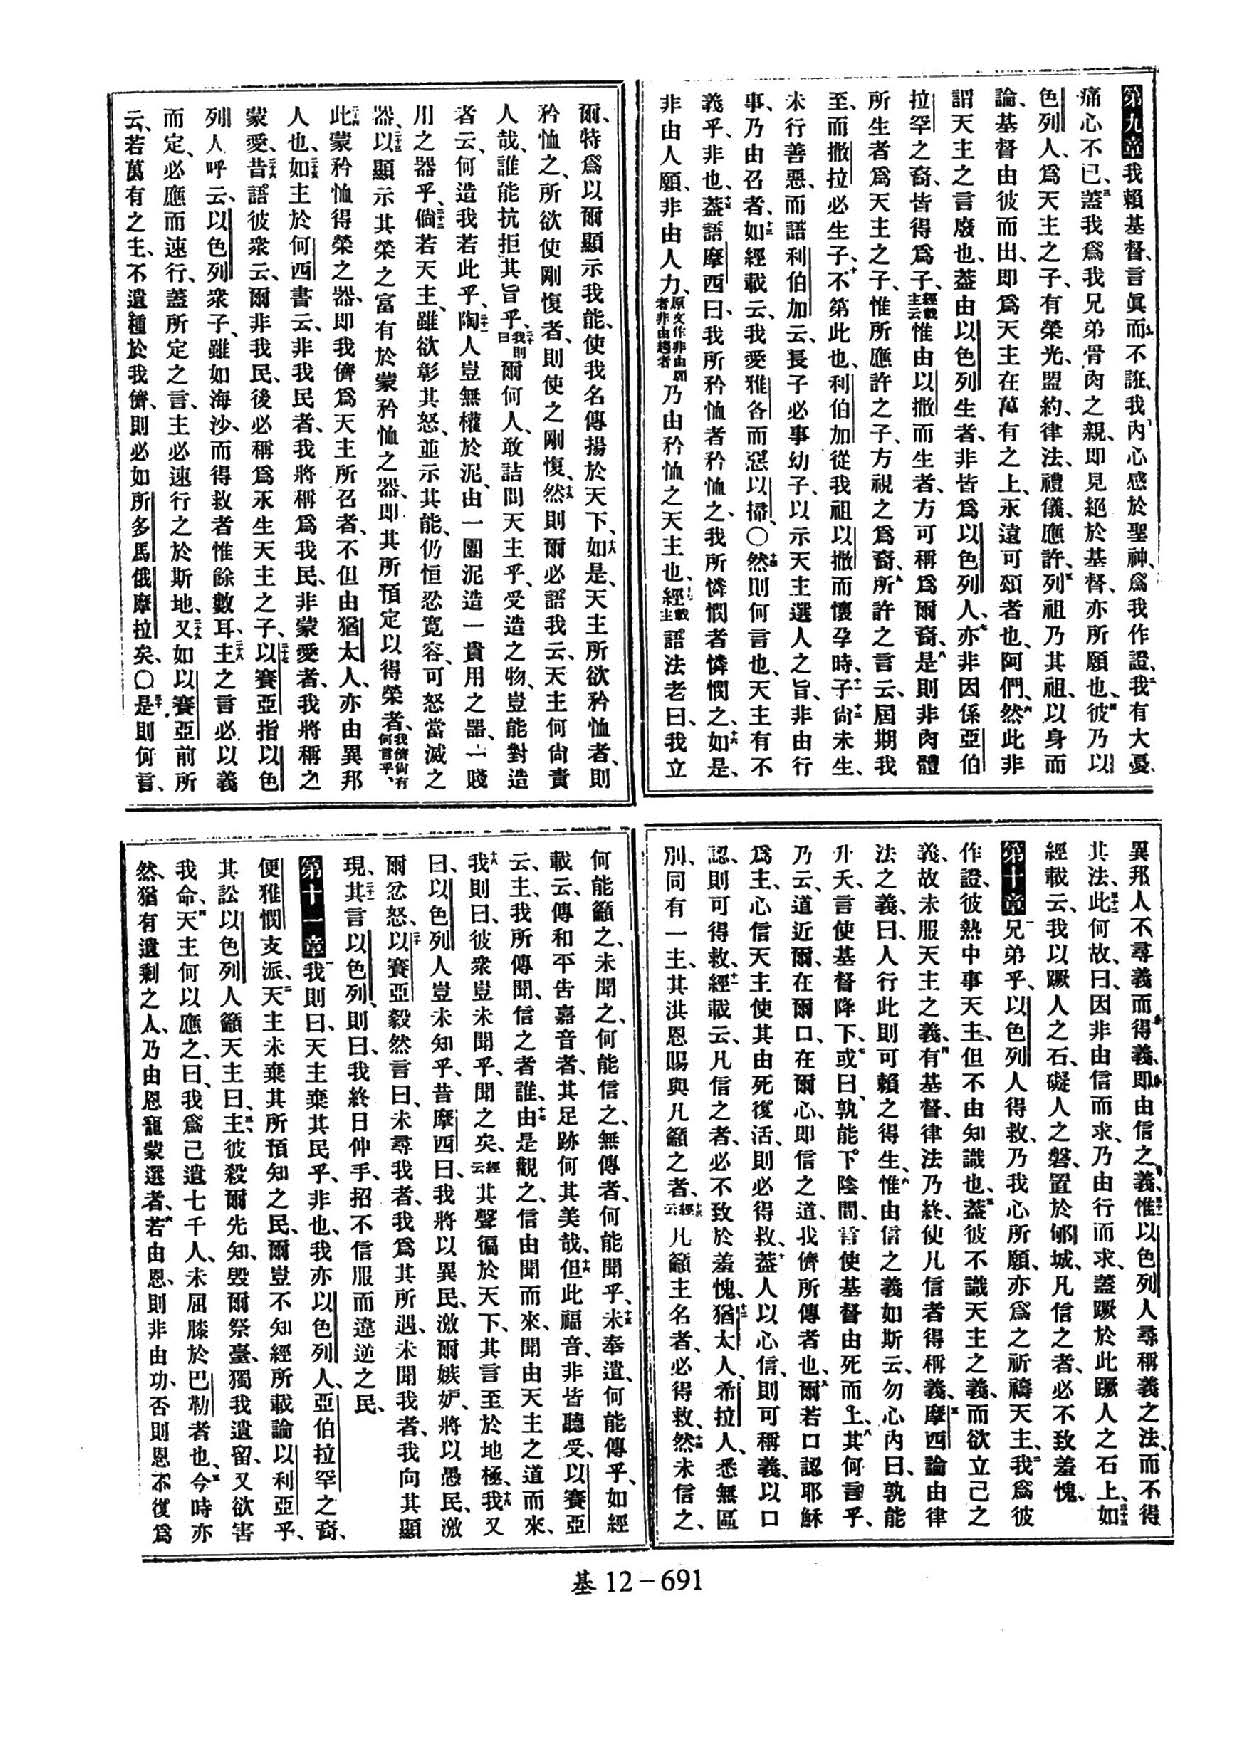 第九章我賴基督、言眞而不誑、我內心感於聖神、爲我作證、我有大憂、
痛心不已、蓋我爲我兄弟骨肉之親、卽見絕於基督、亦所願也、彼乃以
色列人、爲天主之子、有榮光、盟約、律法、禮儀、應許、列祖乃其祖、以身而
論、基督由彼而出、卽爲天主在萬有之上、永遠可頌者也、阿們、然此非
謂天主之言廢也、蓋由以色列生者、非皆爲以色列人、亦非因係亞伯
拉罕之裔、皆得爲子、經載主云惟由以撒而生者、方可稱爲爾裔、是則非肉體
所生者爲天主之子、惟所應許之子、方視之爲裔、所許之言云、屆期我
至、而撒拉必生子、不第此也、利伯加從我祖以撒而懷孕時、子尙未生、
未行善惡、而語利伯加云、長子必事幼子、以示天主選人之旨、非由行
事、乃由召者、如經載云、我愛雅各而惡以掃、〇然則何言也、天主有不
義乎、非也、蓋語摩西曰、我所矜恤者矜恤之、我所憐憫者憐憫之、如是、
非由人願、非由人力、原文作非由願者非由趨者乃由矜恤之天主也、經載主語法老曰、我立
爾、特爲以爾顯示我能、使我名傳揚於天下、如是、天主所欲矜恤者、則
矜恤之、所欲使剛愎者、則使之剛愎、然則爾必語我云、天主何尙責
人哉、誰能抗拒其旨乎、我則曰爾何人、敢詰問天主乎、受造之物、豈能對造
者云、何造我若此乎、陶人豈無權於泥、由一團泥造一貴用之器、一賤
用之器乎、倘若天主、雖欲彰其怒、並示其能、仍恒忍寬容、可怒當滅之
器、以顯示其榮之富有於蒙矜恤之器、卽其所預定以得榮者、我儕尙有何言乎、
此蒙矜恤得榮之器、卽我儕爲天主所召者、不但由猶太人、亦由異邦
人也、如主於何西書云、非我民者、我將稱爲我民、非蒙愛者、我將稱之
蒙愛、昔語彼衆云、爾非我民、後必稱爲永生天主之子、以賽亞指以色
列人呼云、以色列衆子、雖如海沙、而得救者惟餘數耳、主之言必以義
而定、必應而速行、蓋所定之言、主必速行之於斯地、又如以賽亞前所
云、若萬有之主、不遺種於我儕、則必如所多馬俄摩拉矣、〇是則何言、
異邦人不尋義而得義、卽由信之義、惟以色列人尋稱義之法、而不得
其法、此何故、曰、因非由信而求、乃由行而求、蓋蹶於此蹶人之石上、如
經載云、我以蹶人之石、礙人之磐、置於郇城、凡信之者、必不致羞愧、
第十章兄弟乎、以色列人得救、乃我心所願、亦爲之祈禱天主、我爲彼
作證、彼熱中事天主、但不由知識也、蓋彼不識天主之義、而欲立己之
義、故未服天主之義、有基督、律法乃終、使凡信者得稱義、摩西論由律
法之義曰、人行此則可賴之得生、惟由信之義如斯云、勿心內曰、孰能
升天、言使基督降下、或曰、孰能下陰間、言使基督由死而上、其何言乎、
乃云、道近爾、在爾口、在爾心、卽信之道、我儕所傳者也、爾若口認耶穌
爲主、心信天主使其由死復活、則必得救、蓋人以心信、則可稱義、以口
認、則可得救、經載云、凡信之者、必不致於羞愧、猶太人、希拉人、悉無區
別、同有一主、其洪恩賜與凡籲之者、經云凡籲主名者、必得救、然未信之、
何能籲之、未聞之、何能信之、無傳者、何能聞乎、未奉遣、何能傳乎、如經
載云、傳和平吿嘉音者、其足跡何其美哉、但此福音、非皆聽受、以賽亞
云、主、我所傳聞、信之者誰、由是觀之、信由聞而來、聞由天主之道而來、
我則曰、彼衆豈未聞乎、聞之矣、經云其聲徧於天下、其言至於地極、我又
曰、以色列人豈未知乎、昔摩西曰、我將以異民、激爾嫉妒、將以愚民、激
爾忿怒、以賽亞毅然言曰、未尋我者、我爲其所遇、未聞我者、我向其顯
現、其言以色列、則曰、我終日伸手、招不信服而違逆之民、
第十一章我則曰、天主棄其民乎、非也、我亦以色列人、亞伯拉罕之裔、
便雅憫支派、天主未棄其所預知之民、爾豈不知經所載論以利亞乎、
其訟以色列人籲天主曰、主、彼殺爾先知、毀爾祭臺、獨我遺留、又欲害
我命、天主何以應之、曰、我爲己遺七千人、未屈膝於巴勒者也、今時亦
然、猶有遺剩之人、乃由恩寵蒙選者、若由恩、則非由功、否則恩不復爲
基 12－691